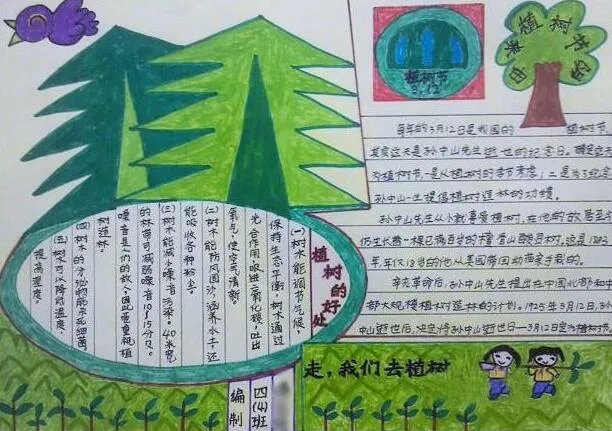 植树节
3.12
植树节的由来
每年的3月12日是我国的 植树节
其实这天是孙中山先生逝世的纪念日。确定这天
为植树节一是从植树的季节考虑,二是为了纪念
孙中山一生提倡植树造林的功绩。
孙中山先生从小就喜爱植树,在他的故居至今
仍生长着一棵已满百岁的檀香山酸豆树。这是1883
年,年仅18岁的他从美国带回幼苗亲手栽的。
辛亥革命后,孙中山先生提出在中国北部和中
部大规模植树造林的计划。1925年3月12日,孙
中山逝世后,决定将孙中山逝世日—3月12日定为植树节
植树的好处
(一)树木能调节气候,
保持生态平衡,树木通过
光合作用,吸进二氧化碳,吐出
氧气,使空气清新
(二)树木能防风固沙,涵养水土,还
能吸收各种粉尘。
(三)树木能减少噪音污染。40米宽
的林带可减弱噪音10-15分贝。
噪音是人们的敌人,因此要重视植
树造林。
(四)树木的分泌物能杀死细菌,
(五)树木可以降低温度,
提高湿度。
四(4)班
编制
走,我们去植树